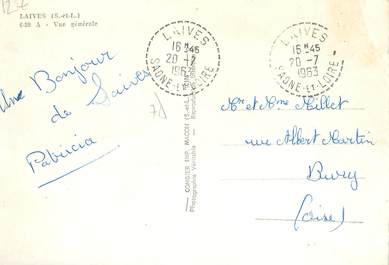 LAIVES (S.-et-L.)
6-39 A - Vue générale
Une Bonjour
de Laives
Patricia
LAIVES
16H45
20-7
1963
SAONE-ET-LOIRE
LAIVES
16H45
20-7
1963
SAONE-ET-LOIRE
COMBIER IMP. MACON (S.-et-L.)
Photographie Véritable - Reproduction
Mr et Mme Millet
rue Albert Martin
Bury
(Oise)